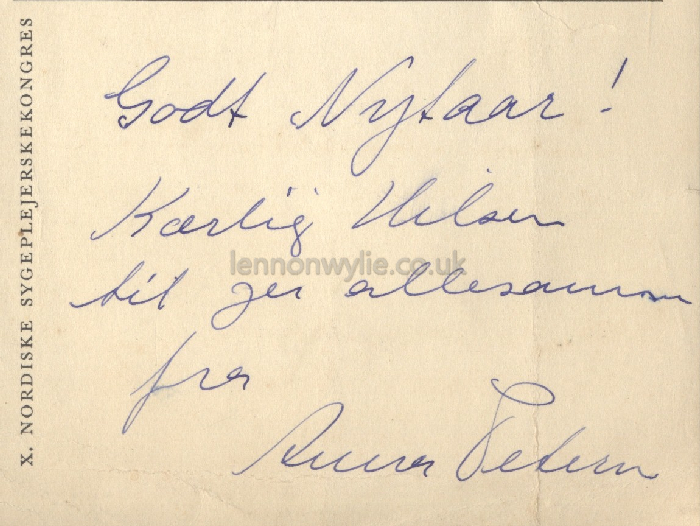 X. NORDISKE SYGEPLEJERSKEKONGRES
Godt Nytaar!
Kærlig Hilsen
til jer allesamm
fra
Anna
lennonwylie.co.uk